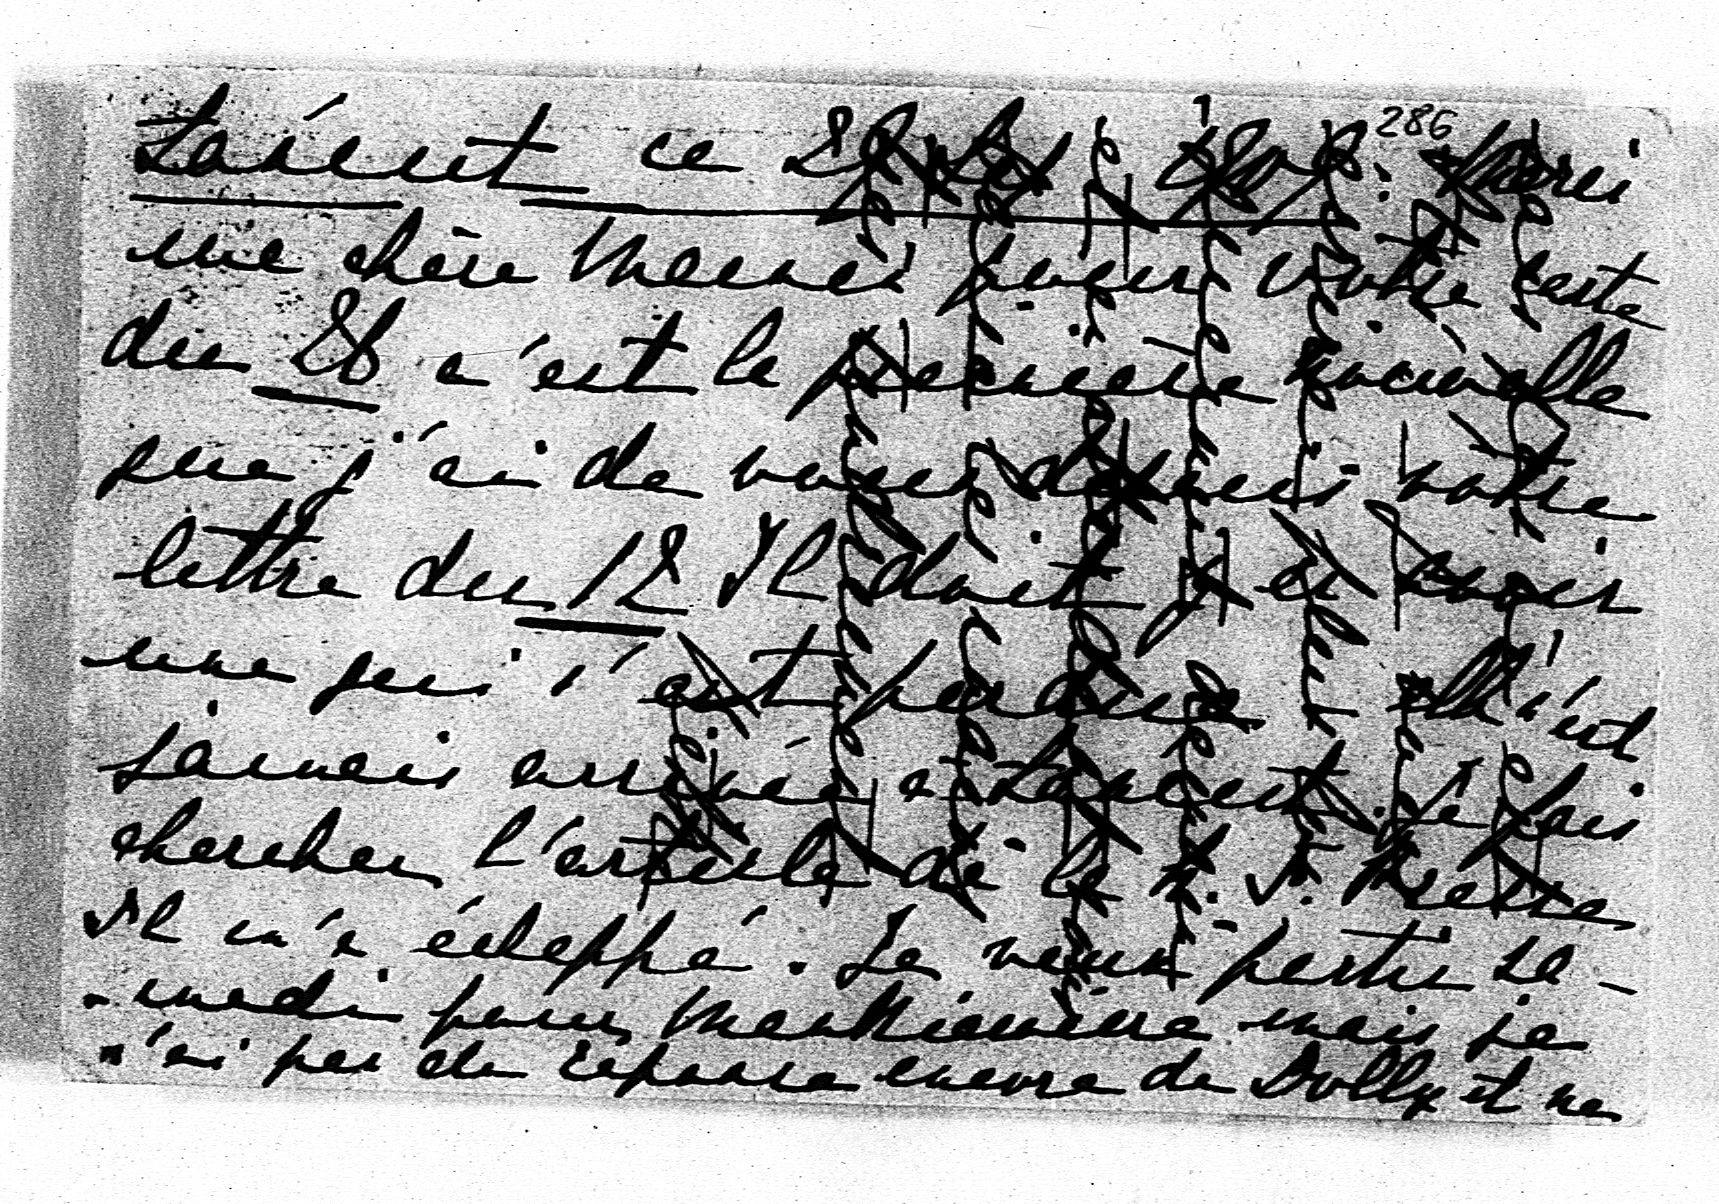 286
ce Merci
ma chère pour votre carte
du 26 c'est la première nouvelle
que j'ai de vous depuis votre
lettre du 12 Il doit y en avoir
une qui s'est perdue - ell n'est
jamais arrivée a Je fais
chercher l'article de la N. F. Presse
Il m'a échappé. Je veux partir Sa-
-medi pour mais je
n'ai pas de réponse encore de Dolly et ne